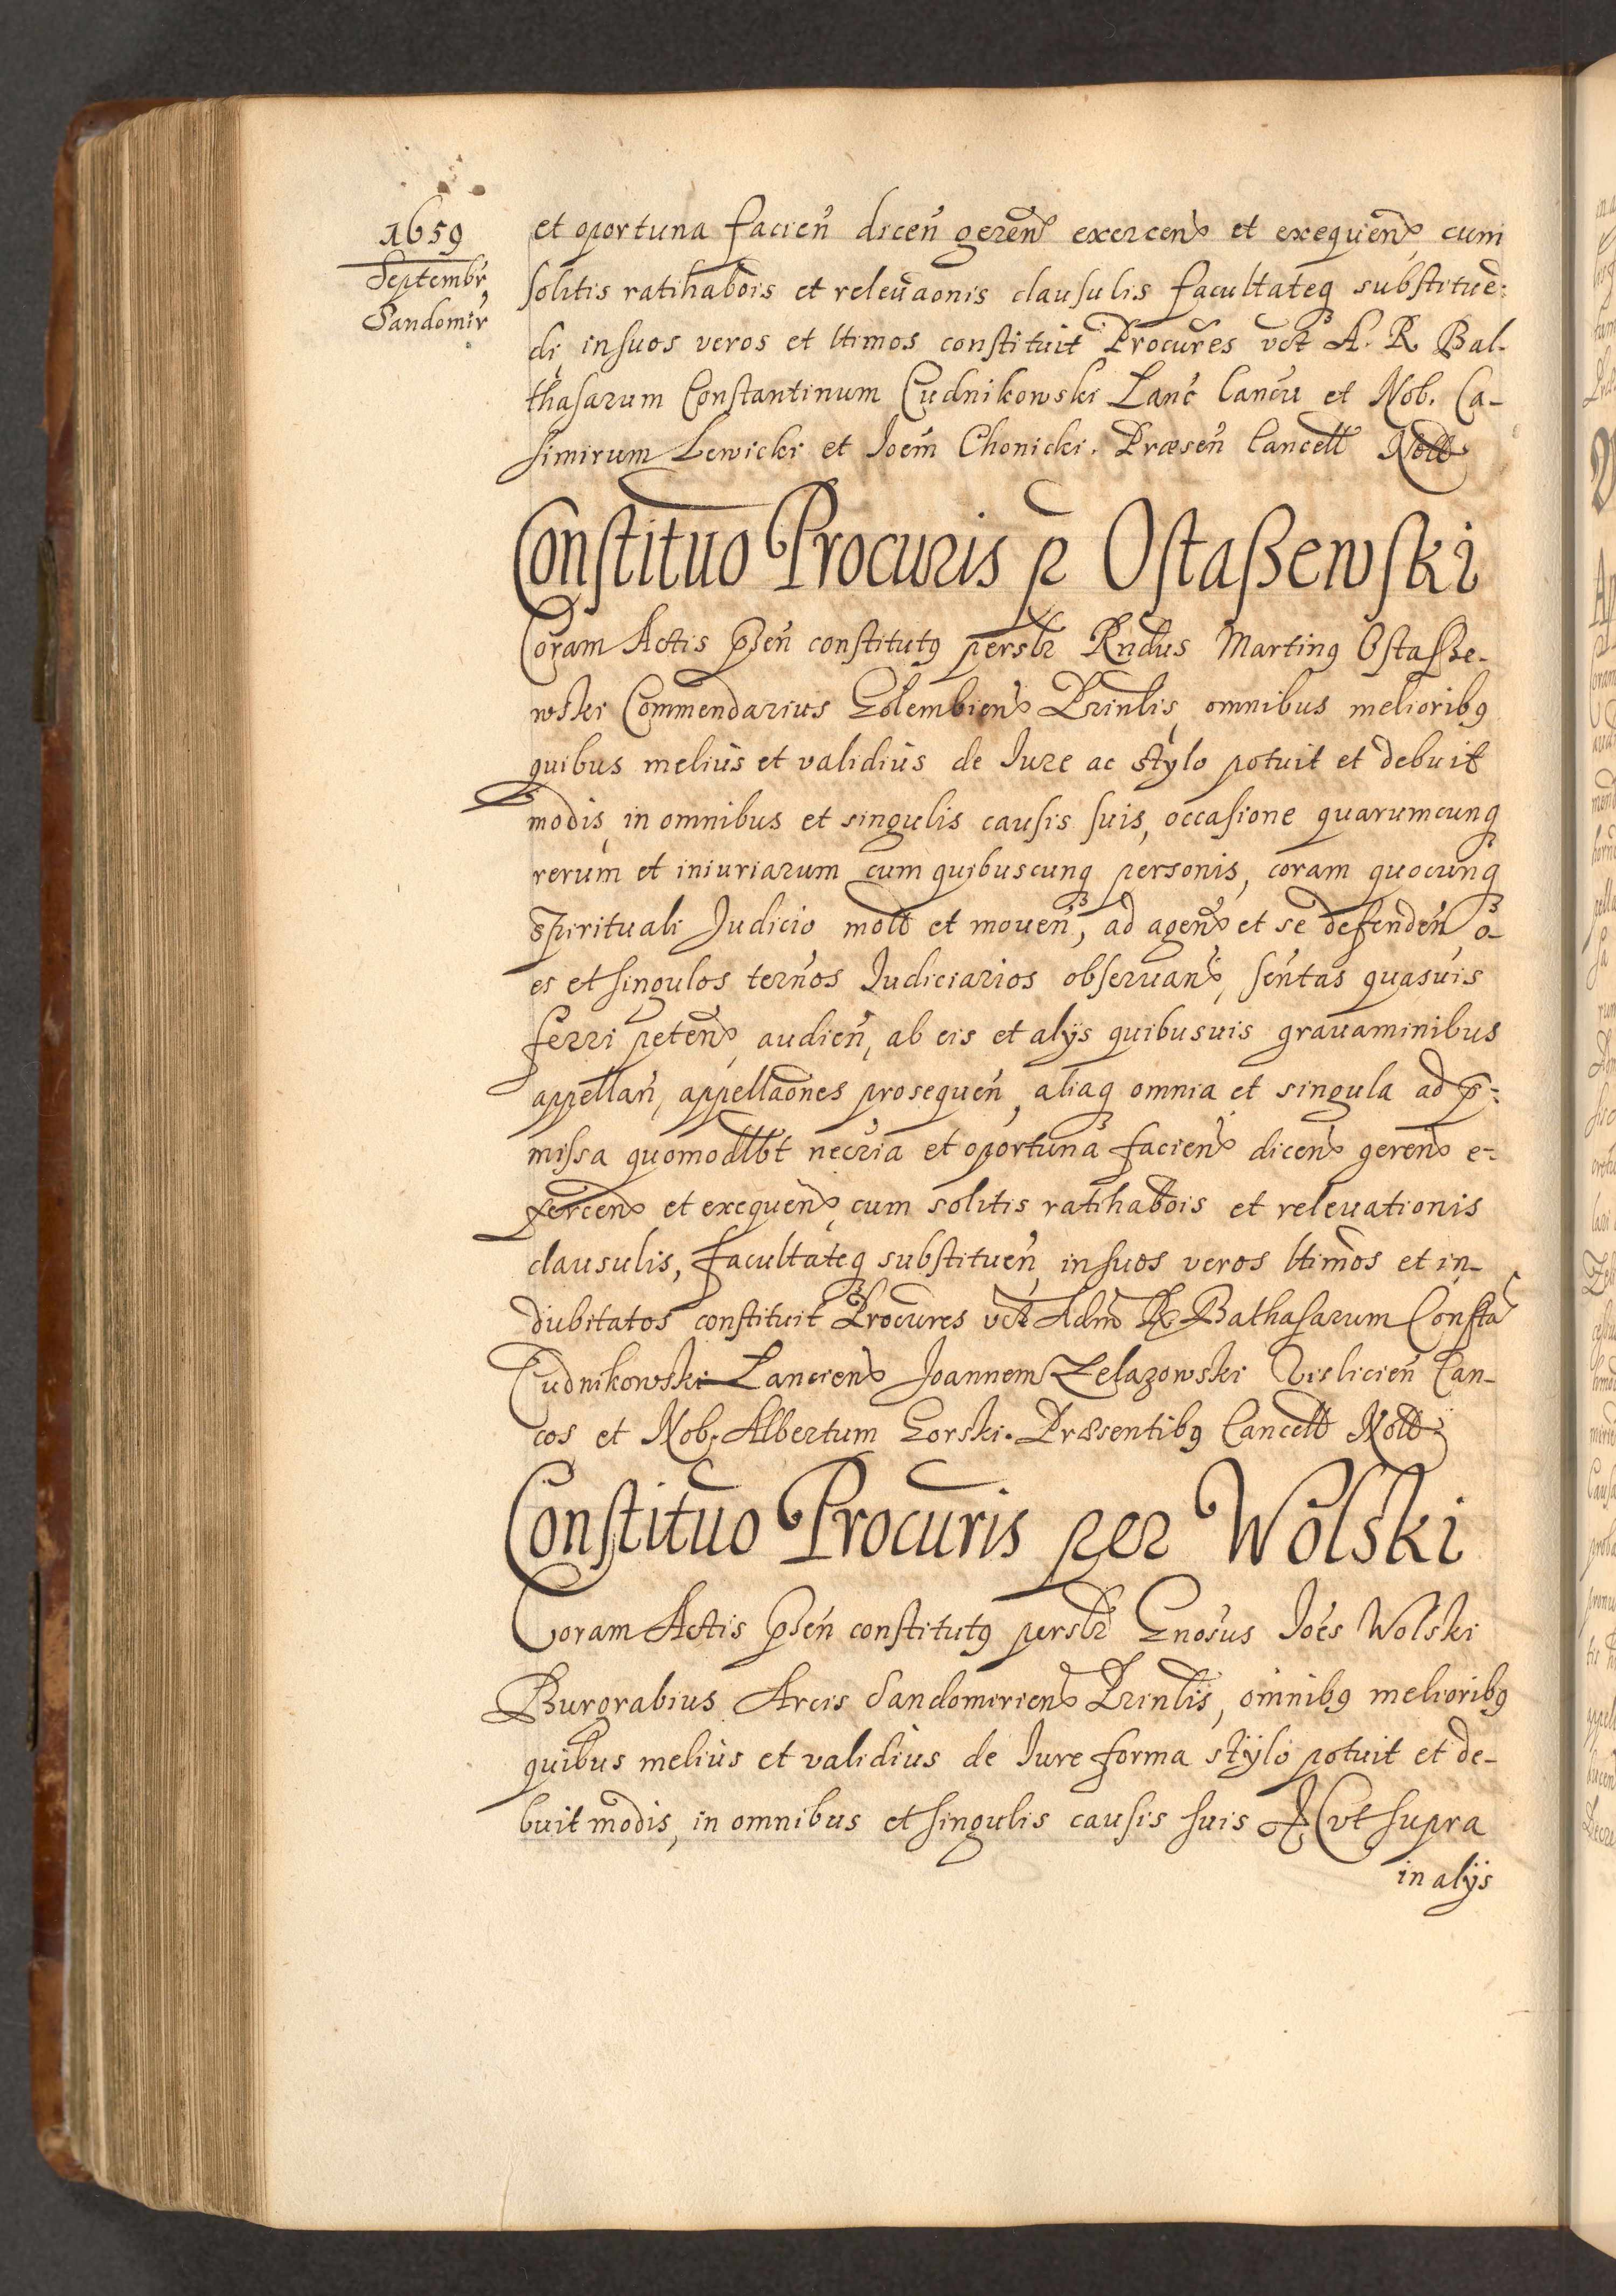 1659
Septembr
Sandomir
et oportuna facień dićeń gereń exerceń et exequeń cum
solitis ratihabōis et relevaōnis clausulis facultateq substituē:
di, in suos veros et ltimos constituit Procures vct A. R. Bal-
thasarum Constantinum Cudnikowski Lanc Cancu et Nob. Ca-
simirum Lewicki et Joem Chonicki. Præseń Cancell Nott
Constituo Procuris p Ostaßewski
Coram Actis pseń constitutq perslr Rndus Martinq Ostaßze-
wski Commendarius Golembień Prinlis, omnibus melioribq
quibus melius et validius de Jure ac stylo potuit et debuit
modis, in omnibus et singulis causis suis, occasione quarumcunq
rerum et iniuriarum cum quibuscunq personis, coram quocunq
Spirituali Judicio mott et moueń, ad ageń et se defendeń o-
es et singulos terńos Judiciarios obseruań, sentas quasuis
ferri peteń, audień, ab eis et alijs quibusuis grauaminibus
appellań, appellaōnes prosequeń, aliaq omnia et singula ad p:
missa quomodlbt necria et oportuna facień diceń gereń e-
xerceń et exequeń, cum solitis ratihabōis et releuationis
clausulis, facultateq substitueń, in suos veros ltimos et in-
dubitatos constituit Procures vct Adm R Bathasarum Consta
Cudnikowski Lancień Joannem Zelazowski Vislicień Can-
cos et Nob. Albertum Gorski. Præsentibq Cancell Nott
Constituo Procuris per Wolski
Coram Actis pseń constitutq perslr Gnosus Joes Wolski
Burgrabius Arcis Sandomirień Prinlis, omnibq melioribq
quibus melius et validius de Jure forma stylo potuit et de-
buit modis, in omnibus et singulis causis suis & vt supra
in alijs